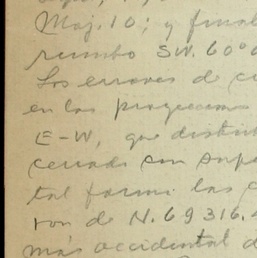 Maj. 10; y final
rumbo SW. 60°
Los errores de c
en las proyecciones
E-W, que distin
cerrado con supe
tal forma las c
ron de N. 69316.
más occidental d